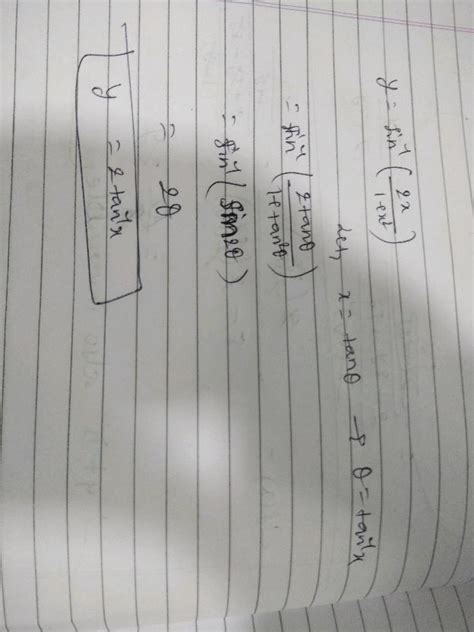 y = sin⁻¹ (2x / 1+x²)
let, x = tanθ → θ = tan⁻¹x
= sin⁻¹ (2tanθ / 1+tan²θ)
= sin⁻¹ (sin2θ)
= 2θ
y = 2tan⁻¹x